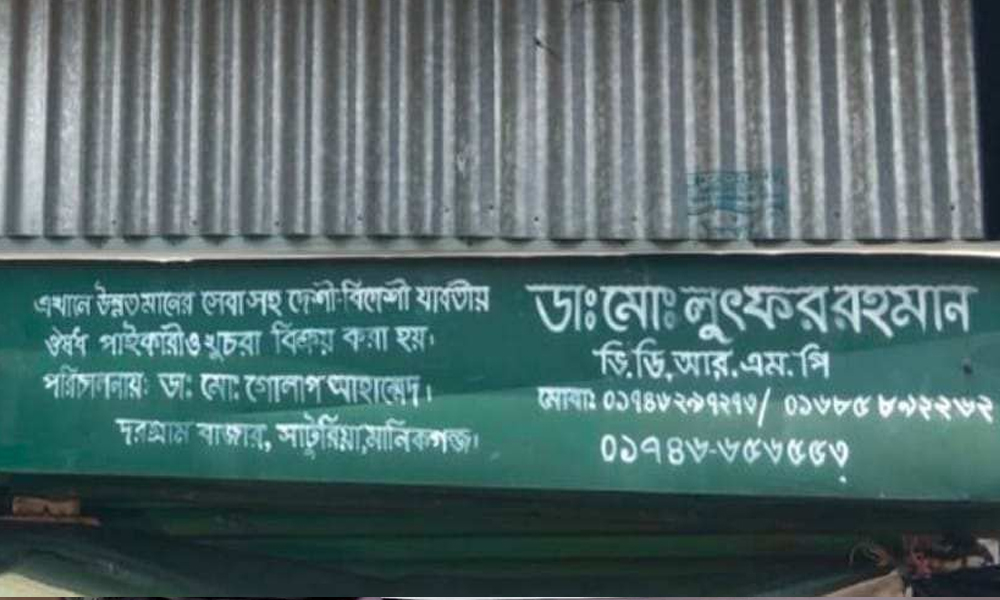 এখানে উন্নতমানের সেবা সহ দেশী-বিদেশী যাবতীয়
ঔষধ পাইকারী ও খুচরা বিক্রয় করা হয়।
পরিচালনায়: ডা: মো: গোলাপ আহাম্মেদ।
দরগ্রাম বাজার, সাটুরিয়া, মানিকগঞ্জ।
ডাঃ মোঃ লুৎফর রহমান
ভি.ডি.আর.এম.পি
মোবা:
০১৭৪৬-৬৫৬৫৫৩